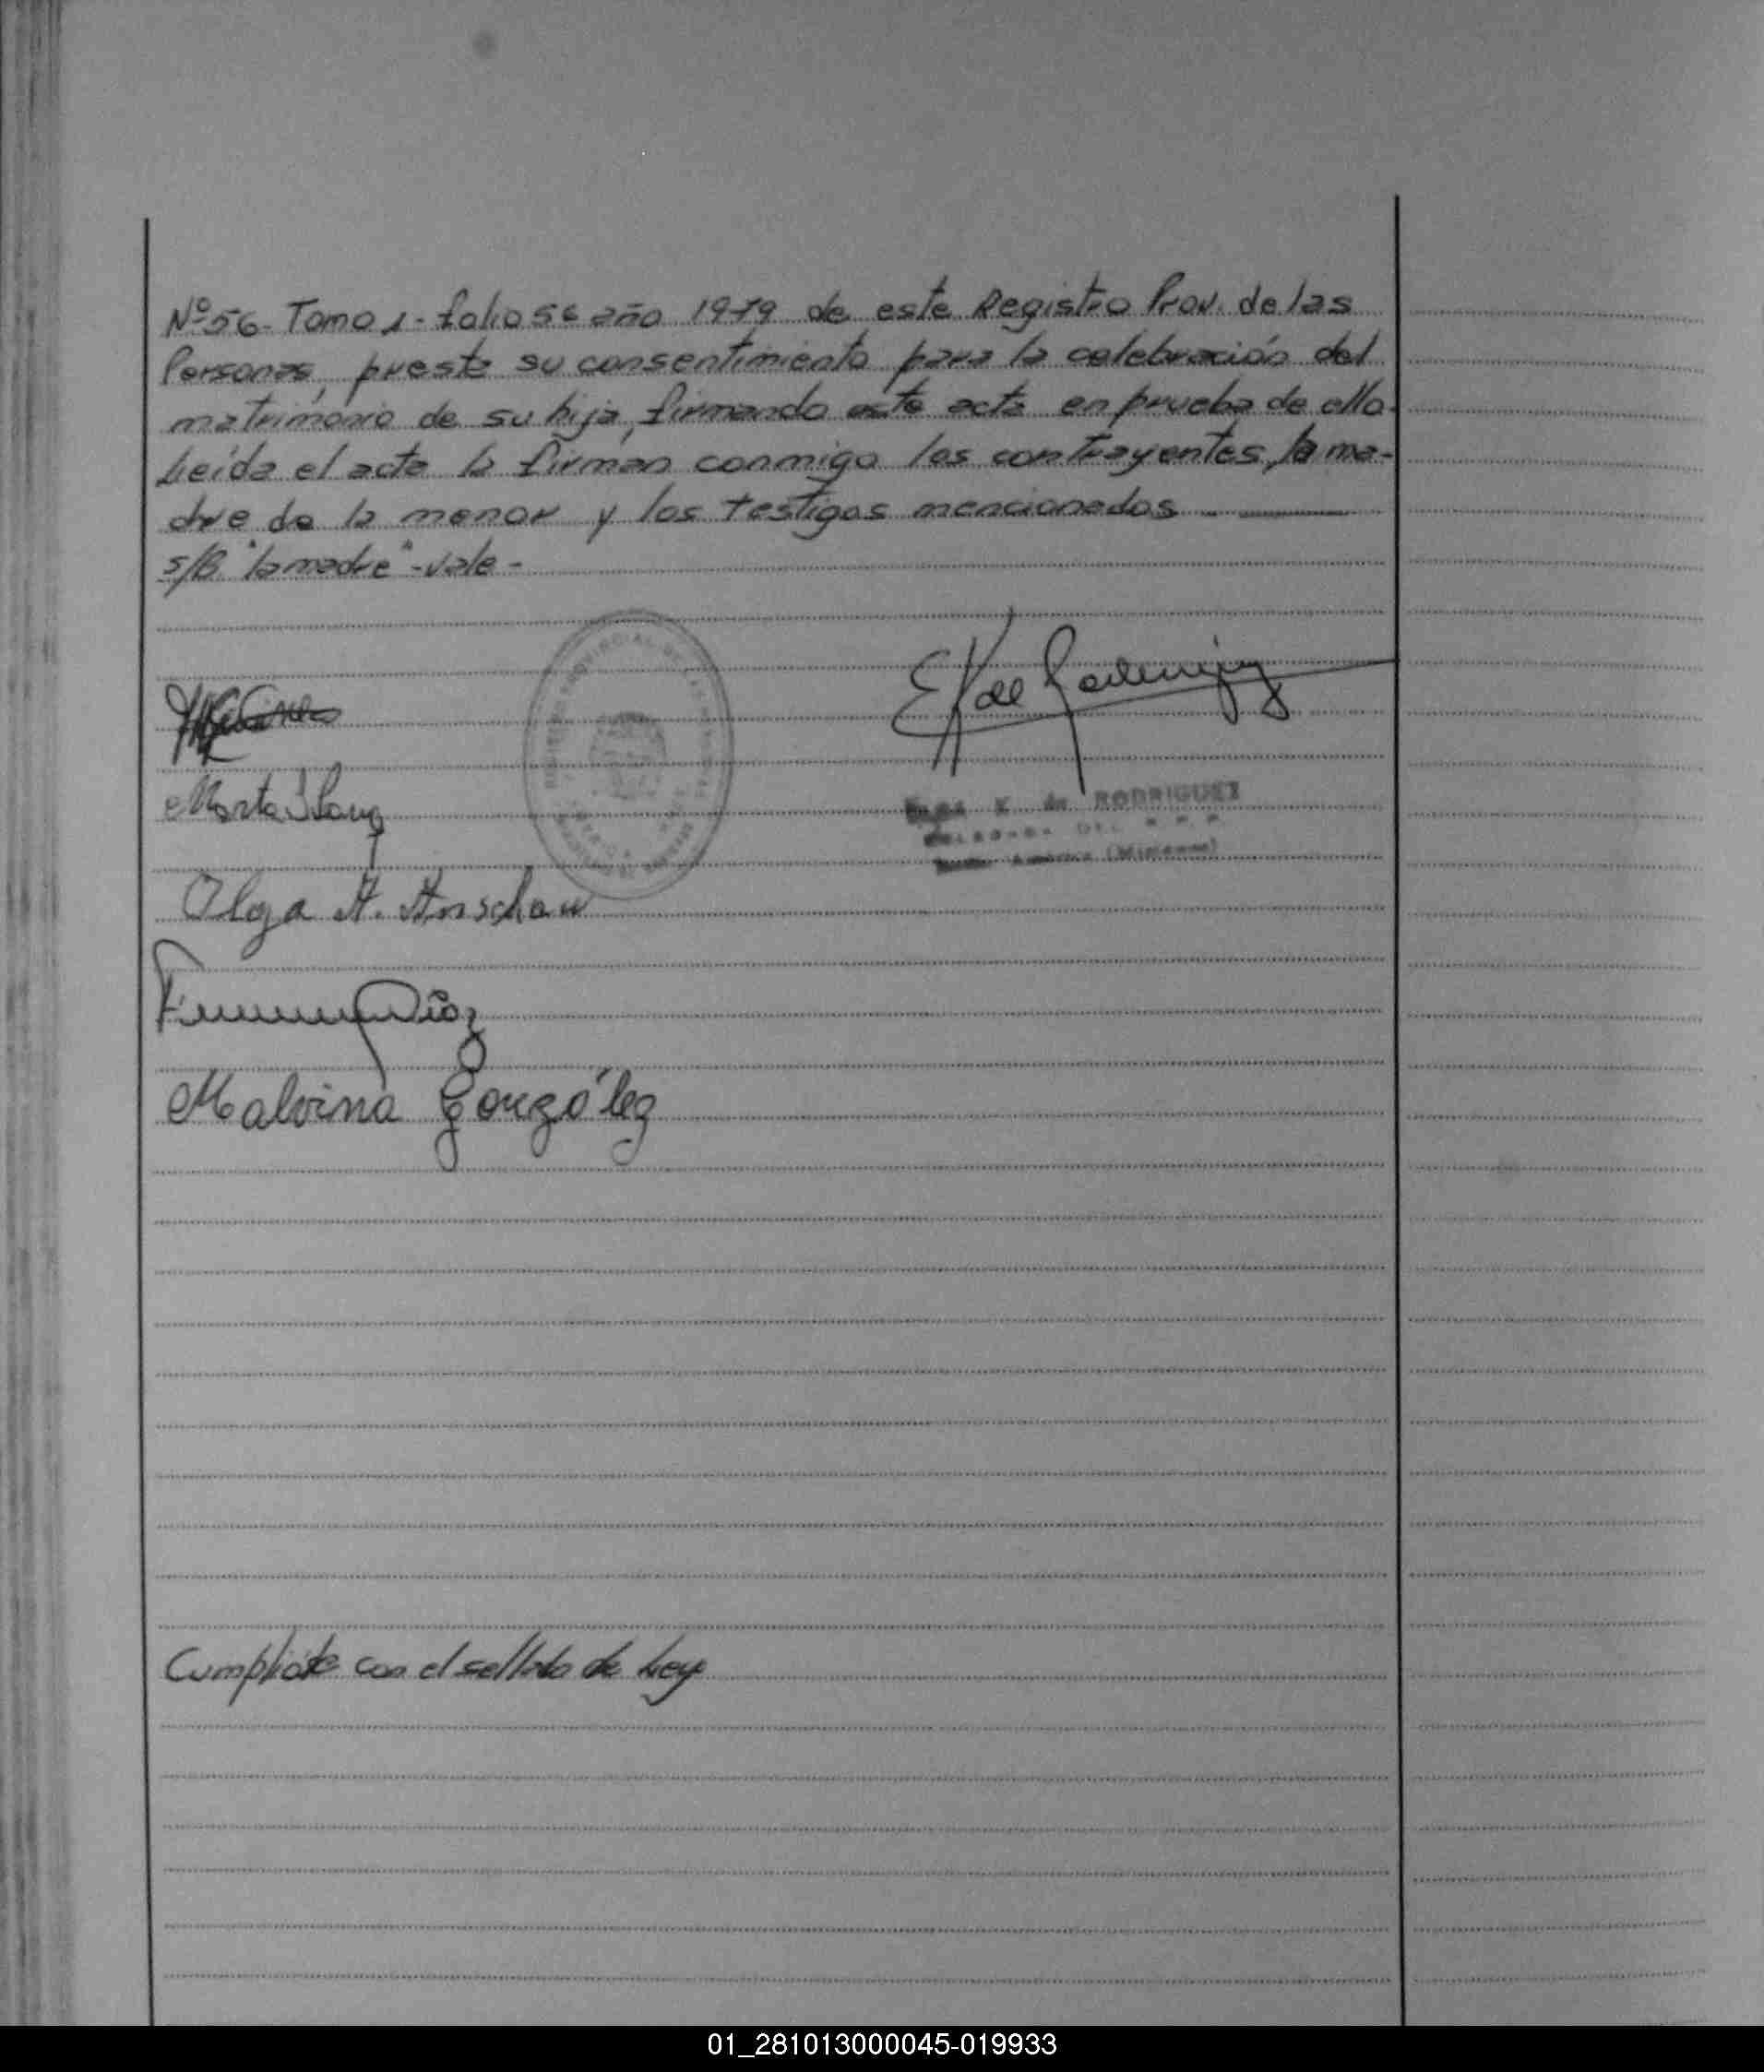 Nº 56- Tomo 1- folio 56 año 1979 de este Registro Prov. de las
Personas, preste su consentimiento para la celebración del
matrimonio de su hija, firmando este acta en prueba de ello.
Leída el acta la firman conmigo los contrayentes, la ma-
dre de la menor y los testigos mencionados - ———
s/B "la madre" - vale -
E K de Rodriguez
Marta
K de RODRIGUEZ
America (Misiones)
Olga A. Anschau
Diaz
Malvina González
Cumpliose con el sellado de Ley
01_281013000045-019933